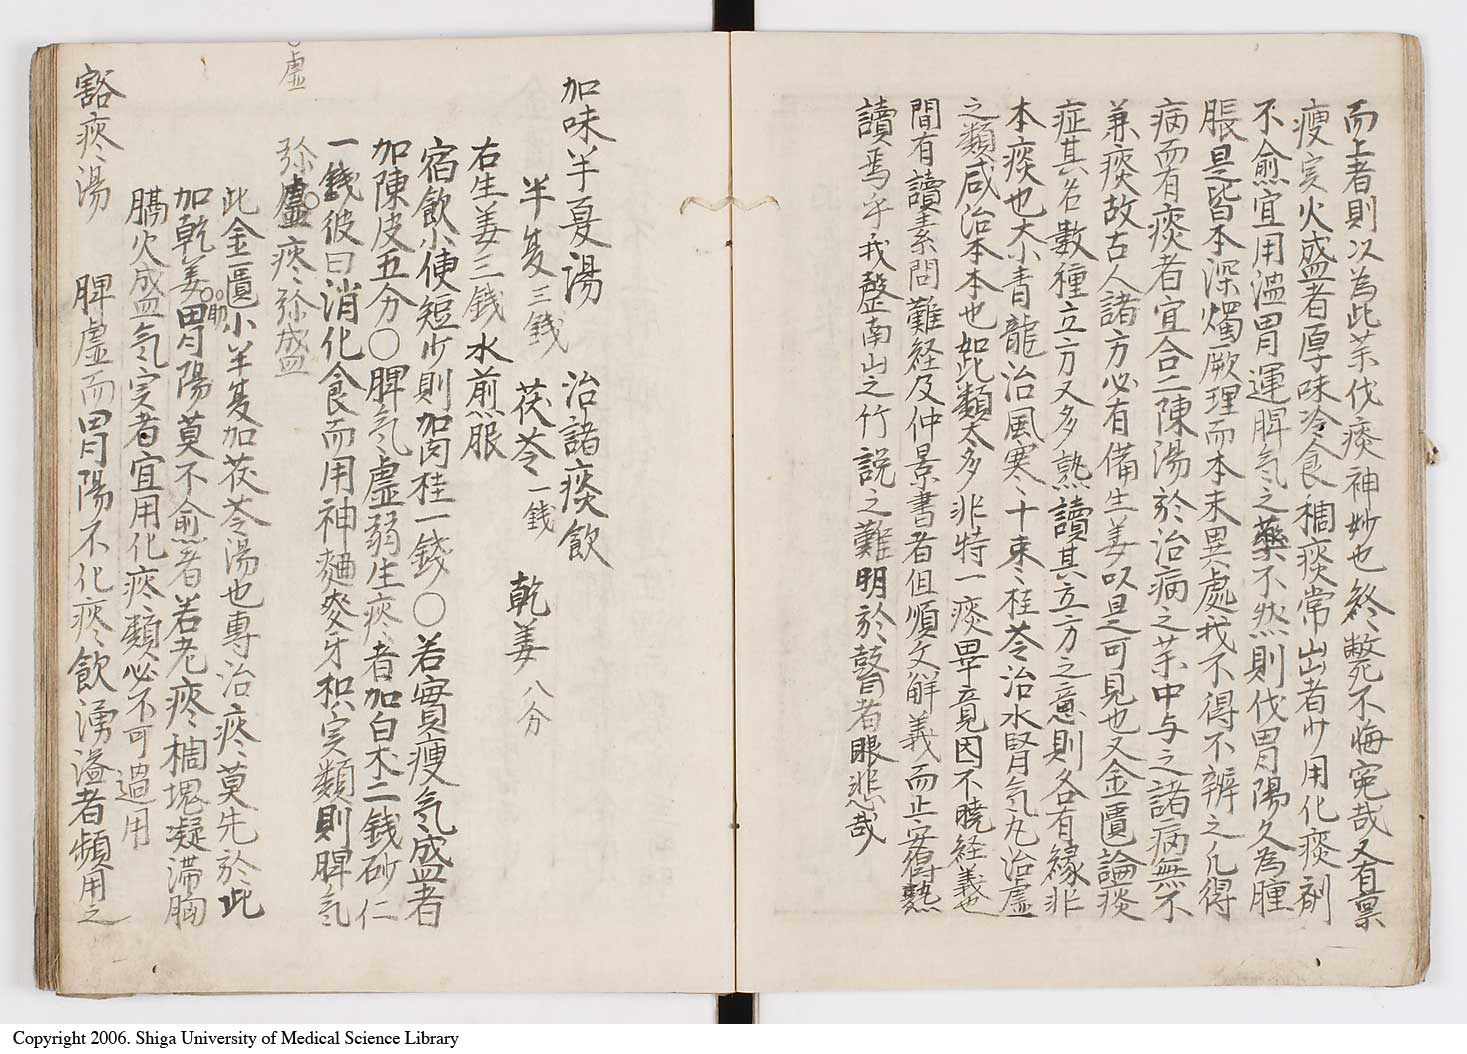 而上者則以為此茉伐痰神妙也終斃不悔寃哉又有稟
瘦実火盛者厚味冷食稠痰常出者少用化痰剤
不愈宜用温胃運脾気之藥不然則伐胃陽久為腫
脹是皆本深燭厥理而本末異處我不得不辨之凡得
病而有痰者宜合二陳湯於治病之茉中与之諸病無不
兼痰故古人諸方必有備生姜以是可見也又金匱論痰
症其名數種立方又多熟讀其立方之意則各有縁非
本痰也大小青龍治風寒十枣桂苓治水腎気丸治虚
之類咸治本本也如此類太多非特一痰畢竟因不曉経義也
間有讀素問難経及仲景書者但順文解義而止安得熟
讀焉乎我罄南山之竹説之難明於瞽者眼悲哉
加味半夏湯 治諸痰飲
半夏三銭 茯苓一銭 乾姜八分
右生姜三銭水煎服
宿飲小便短少則加肉桂一錢〇若實瘦気盛者
加陳皮五分〇脾気虚弱生痰者加白朮二銭砂仁
一錢彼曰消化食而用神麯麥牙枳実類則脾気
弥虚痰弥盛
虚
此金匱小半夏加茯苓湯也專治痰莫先於此
加乾姜助胃陽莫不愈者若老痰稠塊凝滞胸
膈火盛気実者宜用化痰類必不可過用
豁痰湯 脾虚而胃陽不化痰飲湧溢者頻用之
Copyright 2006. Shiga University of Medical Science Library